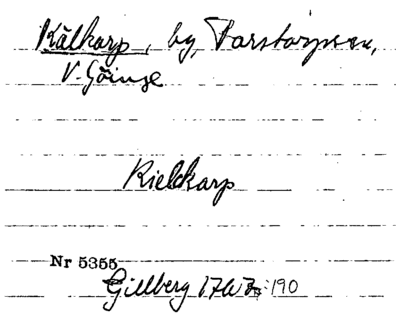 Kälkarp, by, Farstorps sn,
V. Göinge
Kielckarp
Nr 5355
Gillberg 1767: 190